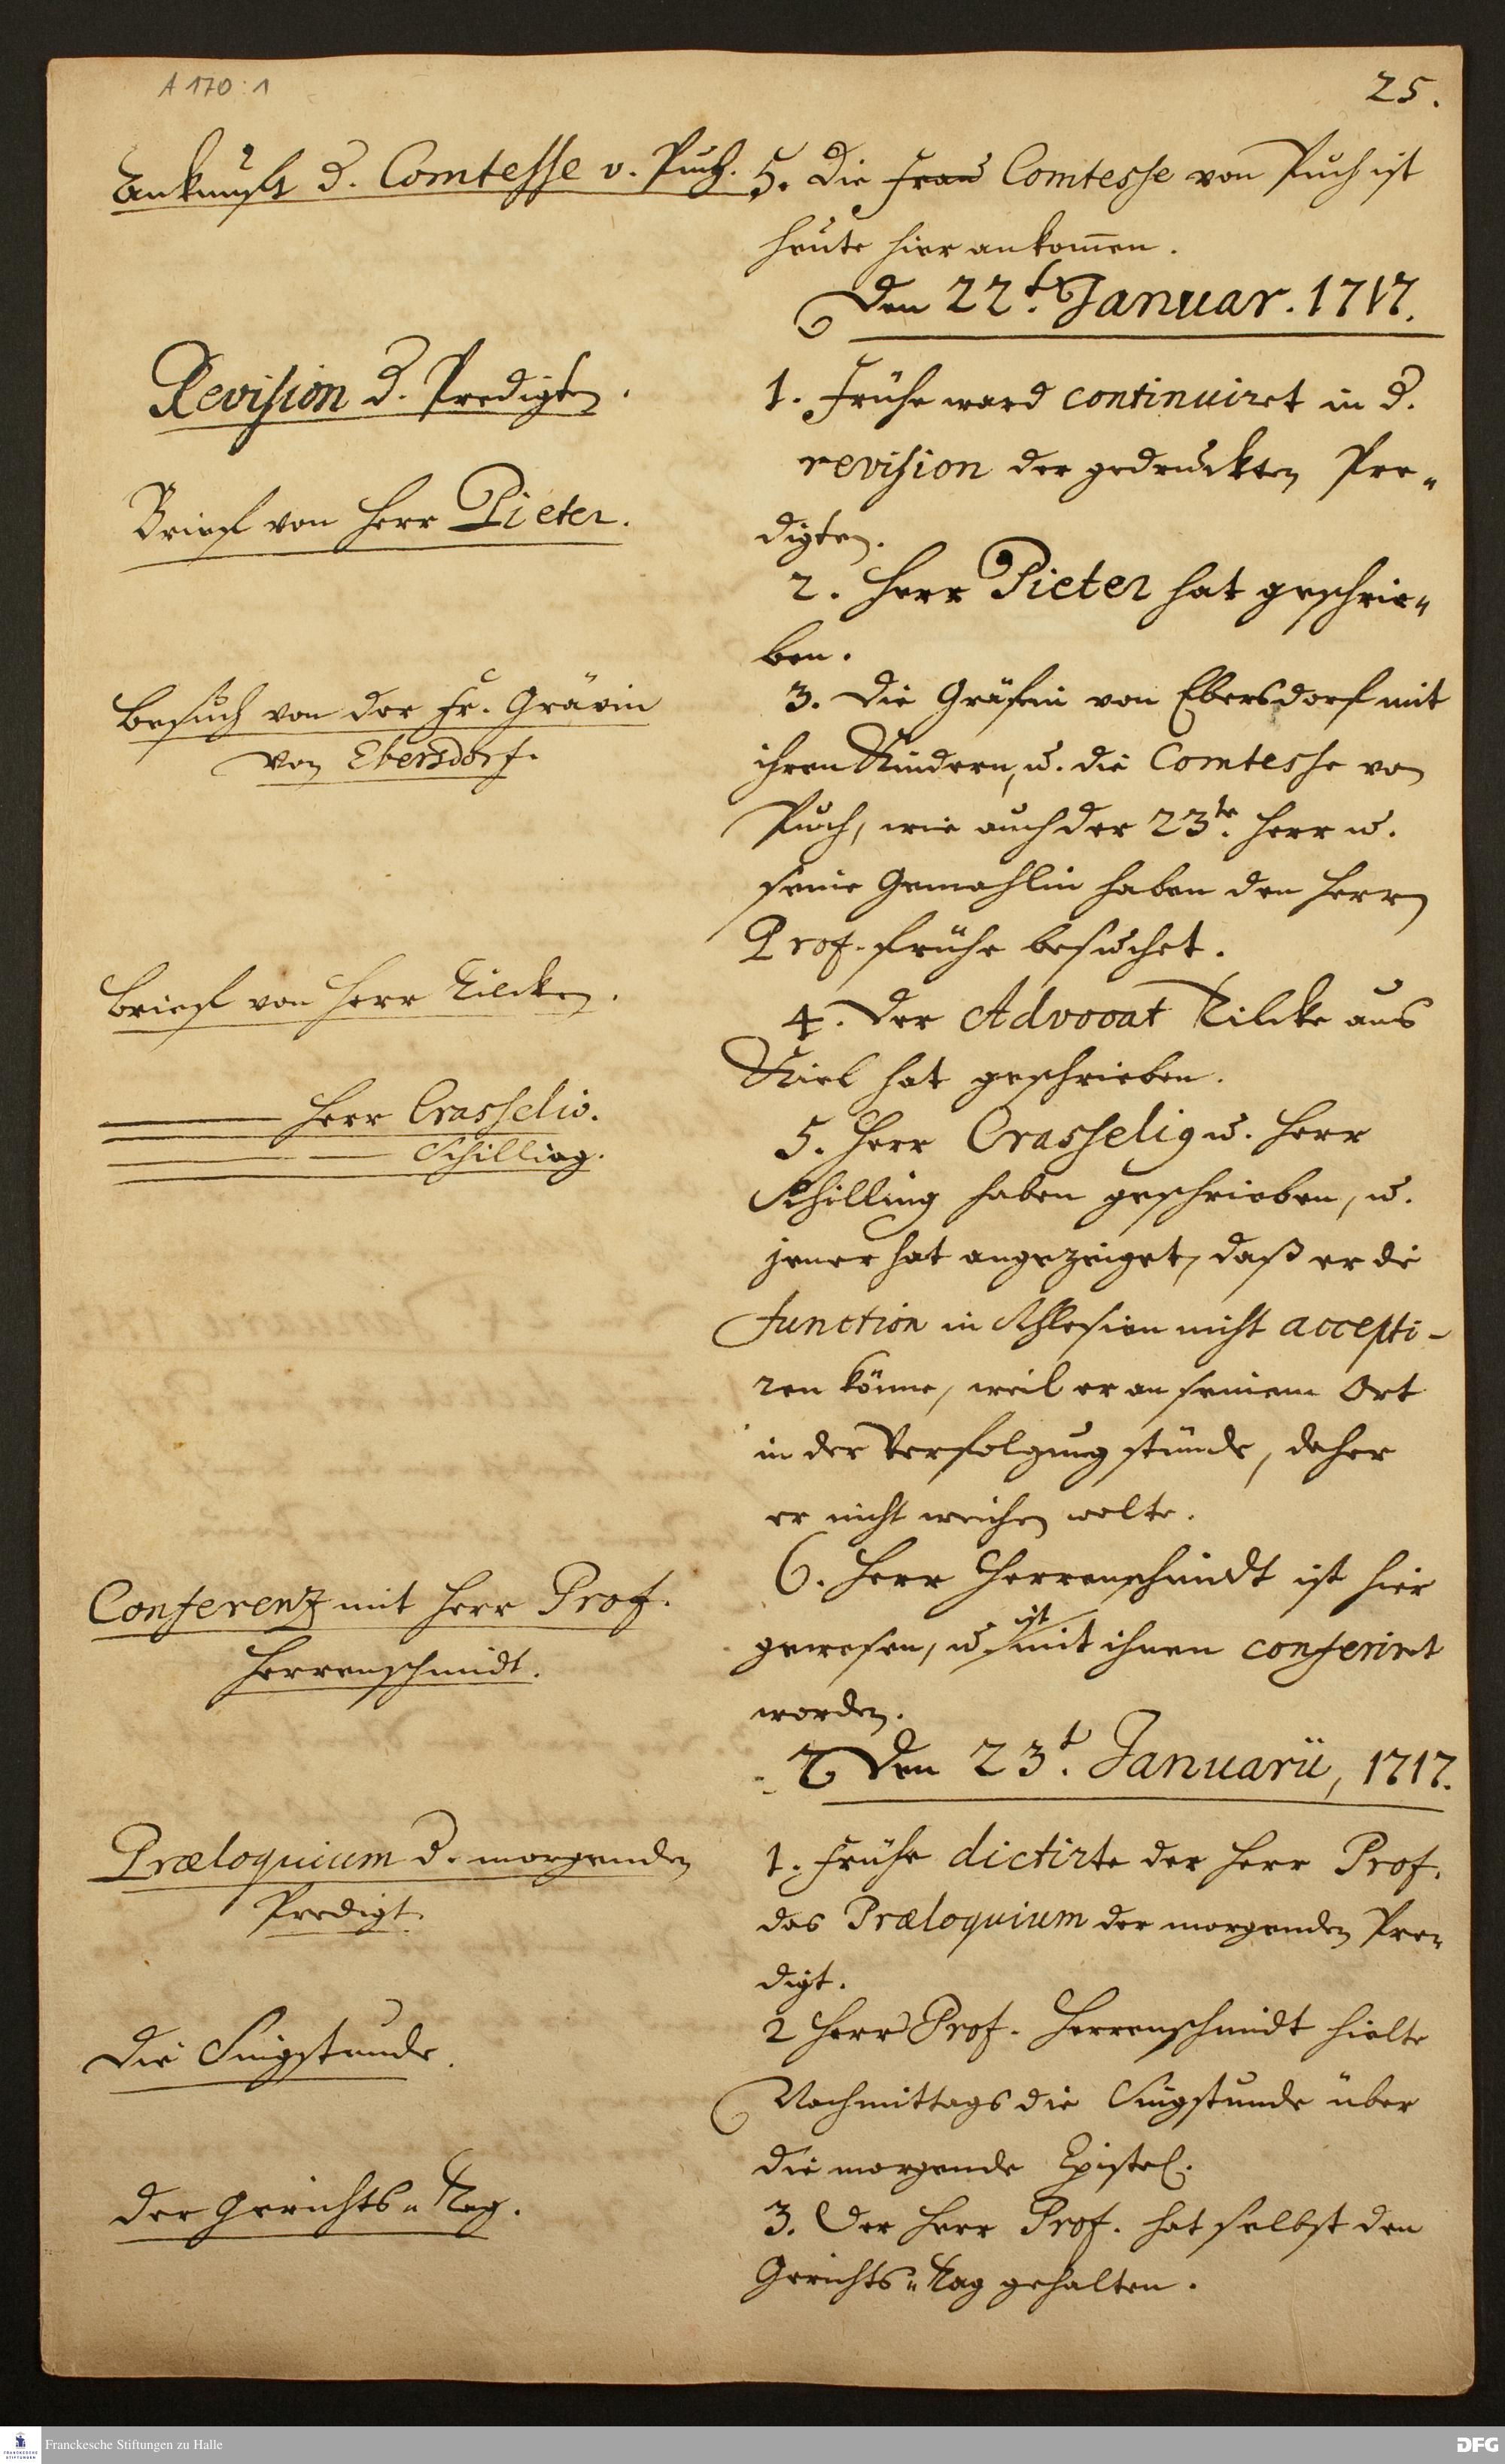 A 170:1
25.
Ankunft d. Comtesse v. Puch.
5. Die Frau Comtesse von Puch ist
heute hier ankom̅en.
Den 22.t Januar. 1717.
Revision d. Predigten.
1. Frühe ward continuiret in d.
revision der gedruckten Pre-
digten.
Brief von Herr Pieter.
2. Herr Pieter hat geschrie-
ben.
Besuch von der Fr. Grävin
von Ebersdorf.
3. Die Gräfin von Ebersdorf mit
ihren Kindern, u. die Comtesse von
Puch, wie auch der 23.te Herr u.
seine Gemahlin haben den Herrn
Prof. frühe besuchet.
Brief von Herr Tilcken.
4. Der Advocat Tilcke aus
Kiel hat geschrieben.
Herr Crasselio.
Schilling.
5. Herr Crasselig u. Herr
Schilling haben geschrieben, u.
jener hat angezeiget, daß er die
function in Schlesien nicht accepti-
ren könne, weil er an seinem Ort
in der Verfolgung stünde, daher
er nicht weichen wolte.
Conferenz mit Herr Prof.
Herrenschmidt.
6. Herr Herrenschmidt ist hier
gewesen, u. ist mit ihnen conferiret
worden.
♄ Den 23.t Januarii, 1717.
Præloquium d. morgenden
Predigt.
1. Frühe dictirte der Herr Prof.
das Præloquium der morgenden Pre-
digt.
Die Singstunde.
2 Herr Prof. Herrenschmidt hielte
Nachmittags die Singstunde über
die morgende Epistel.
Der Gerichts-Tag.
3. Der Herr Prof. hat selbst den
Gerichts-Tag gehalten.
Franckesche Stiftungen zu Halle
DFG